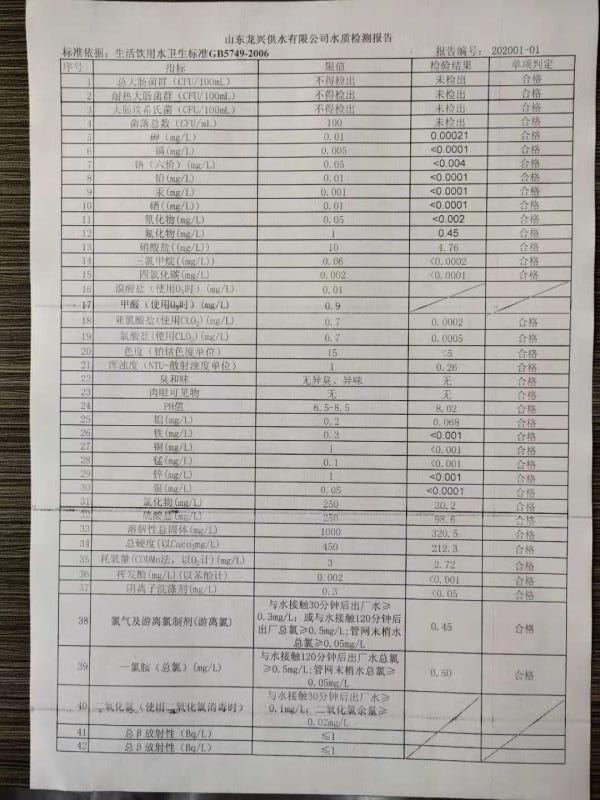 山东龙兴供水有限公司水质检测报告
标准依据：生活饮用水卫生标准GB5749-2006 报告编号：202001-01
序号 指标 限值 检验结果 单项判定
1 总大肠菌群（CFU/100mL） 不得检出 未检出 合格
2 耐热大肠菌群（CFU/100mL） 不得检出 未检出 合格
3 大肠埃希氏菌（CFU/100mL） 不得检出 未检出 合格
4 菌落总数（CFU/mL） 100 未检出 合格
5 砷(mg/L) 0.01 0.00021 合格
6 镉(mg/L) 0.005 <0.0001 合格
7 铬（六价）(mg/L) 0.05 <0.004 合格
8 铅(mg/L) 0.01 <0.0001 合格
9 汞(mg/L) 0.001 <0.0001 合格
10 硒((mg/L) 0.01 <0.0001 合格
11 氰化物(mg/L) 0.05 <0.002 合格
12 氟化物(mg/L) 1 0.45 合格
13 硝酸盐((mg/L)) 10 4.76 合格
14 三氯甲烷((mg/L)) 0.06 <0.0002 合格
15 四氯化碳(mg/L) 0.002 <0.0001 合格
16 溴酸盐（使用O3时）(mg/L) 0.01
17 甲醛（使用O3时）(mg/L) 0.9
18 亚氯酸盐(使用CLO2)(mg/L) 0.7 0.0002 合格
19 氯酸盐(使用CLO2)(mg/L) 0.7 0.0005 合格
20 色度（铂钴色度单位） 15 <5 合格
21 浑浊度（NTU-散射浊度单位） 1 0.26 合格
22 臭和味 无异臭、异味 无 合格
23 肉眼可见物 无 无 合格
24 PH值 6.5-8.5 8.02 合格
25 铝(mg/L) 0.2 0.068 合格
26 铁(mg/L) 0.3 <0.001 合格
27 铜(mg/L) 1 <0.001 合格
28 锰(mg/L) 0.1 <0.001 合格
29 锌(mg/L) 1 <0.001 合格
30 银(mg/L) 0.05 <0.0001 合格
31 氯化物(mg/L) 250 30.2 合格
32 硫酸盐(mg/L) 250 98.6 合格
33 溶解性总固体(mg/L) 1000 320.5 合格
34 总硬度(以Caco3mg/L) 450 212.3 合格
35 耗氧量(CODMn法，以O2计)(mg/L) 3 2.72 合格
36 挥发酚(mg/L)(以苯酚计) 0.002 <0.001 合格
37 阴离子洗涤剂(mg/L) 0.3 <0.05 合格
与水接触30分钟后出厂水≥
38 氯气及游离氯制剂(游离氯) 0.3mg/L；或与水接触120分钟后 0.45 合格
出厂总氯≥0.5mg/L;管网末梢水
总氯≥0.05mg/L
与水接触120分钟后出厂水总氯
39 一氯胺（总氯）(mg/L) ≥0.5mg/L;管网末梢水总氯≥ 0.50 合格
0.05mg/L
与水接触30分钟后出厂水≥
40 二氧化氯（使用二氧化氯消毒时） 0.1mg/L；二氧化氯余量≥
0.02mg/L
41 总β放射性（Bq/L） ≤1
42 总β放射性（Bq/L） ≤1